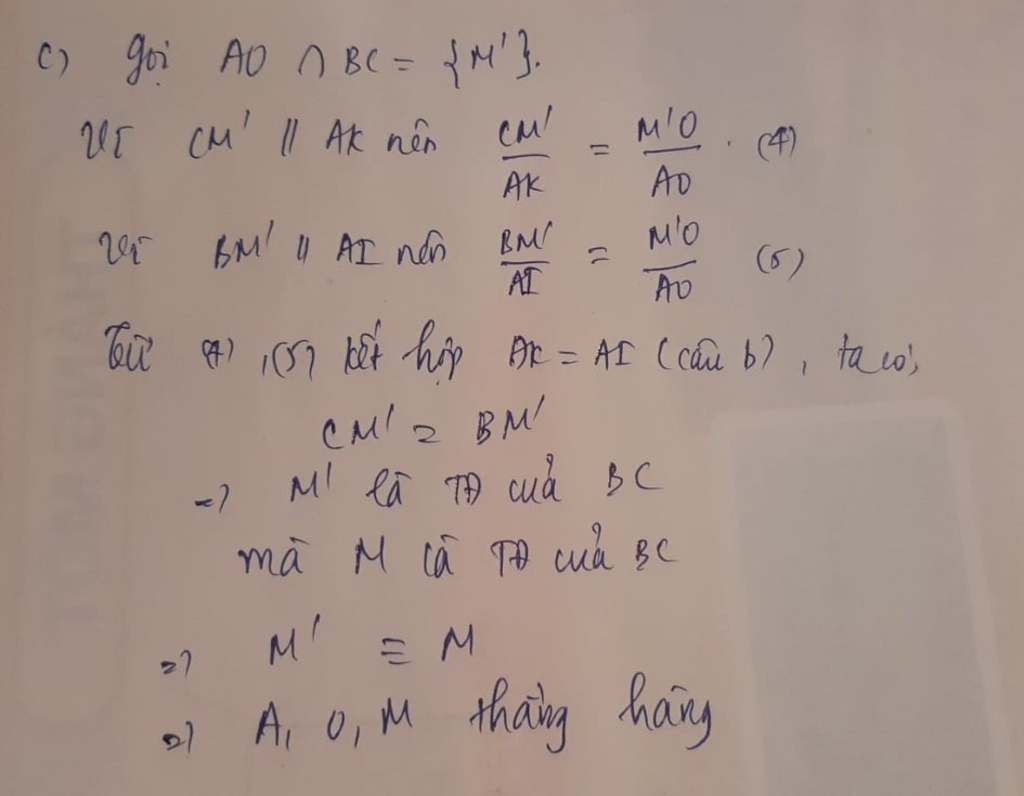 c) Gọi AO ∩ BC = {M'}.
Vì CM' // AK nên CM'/AK = M'O/AO. (4)
Vì BM' // AI nên BM'/AI = M'O/AO (5)
Từ (4), (5) kết hợp AK = AI (câu b), ta có,
CM' = BM'
=> M' là TĐ của BC
mà M là TĐ của BC
=> M' ≡ M
=> A, O, M thẳng hàng